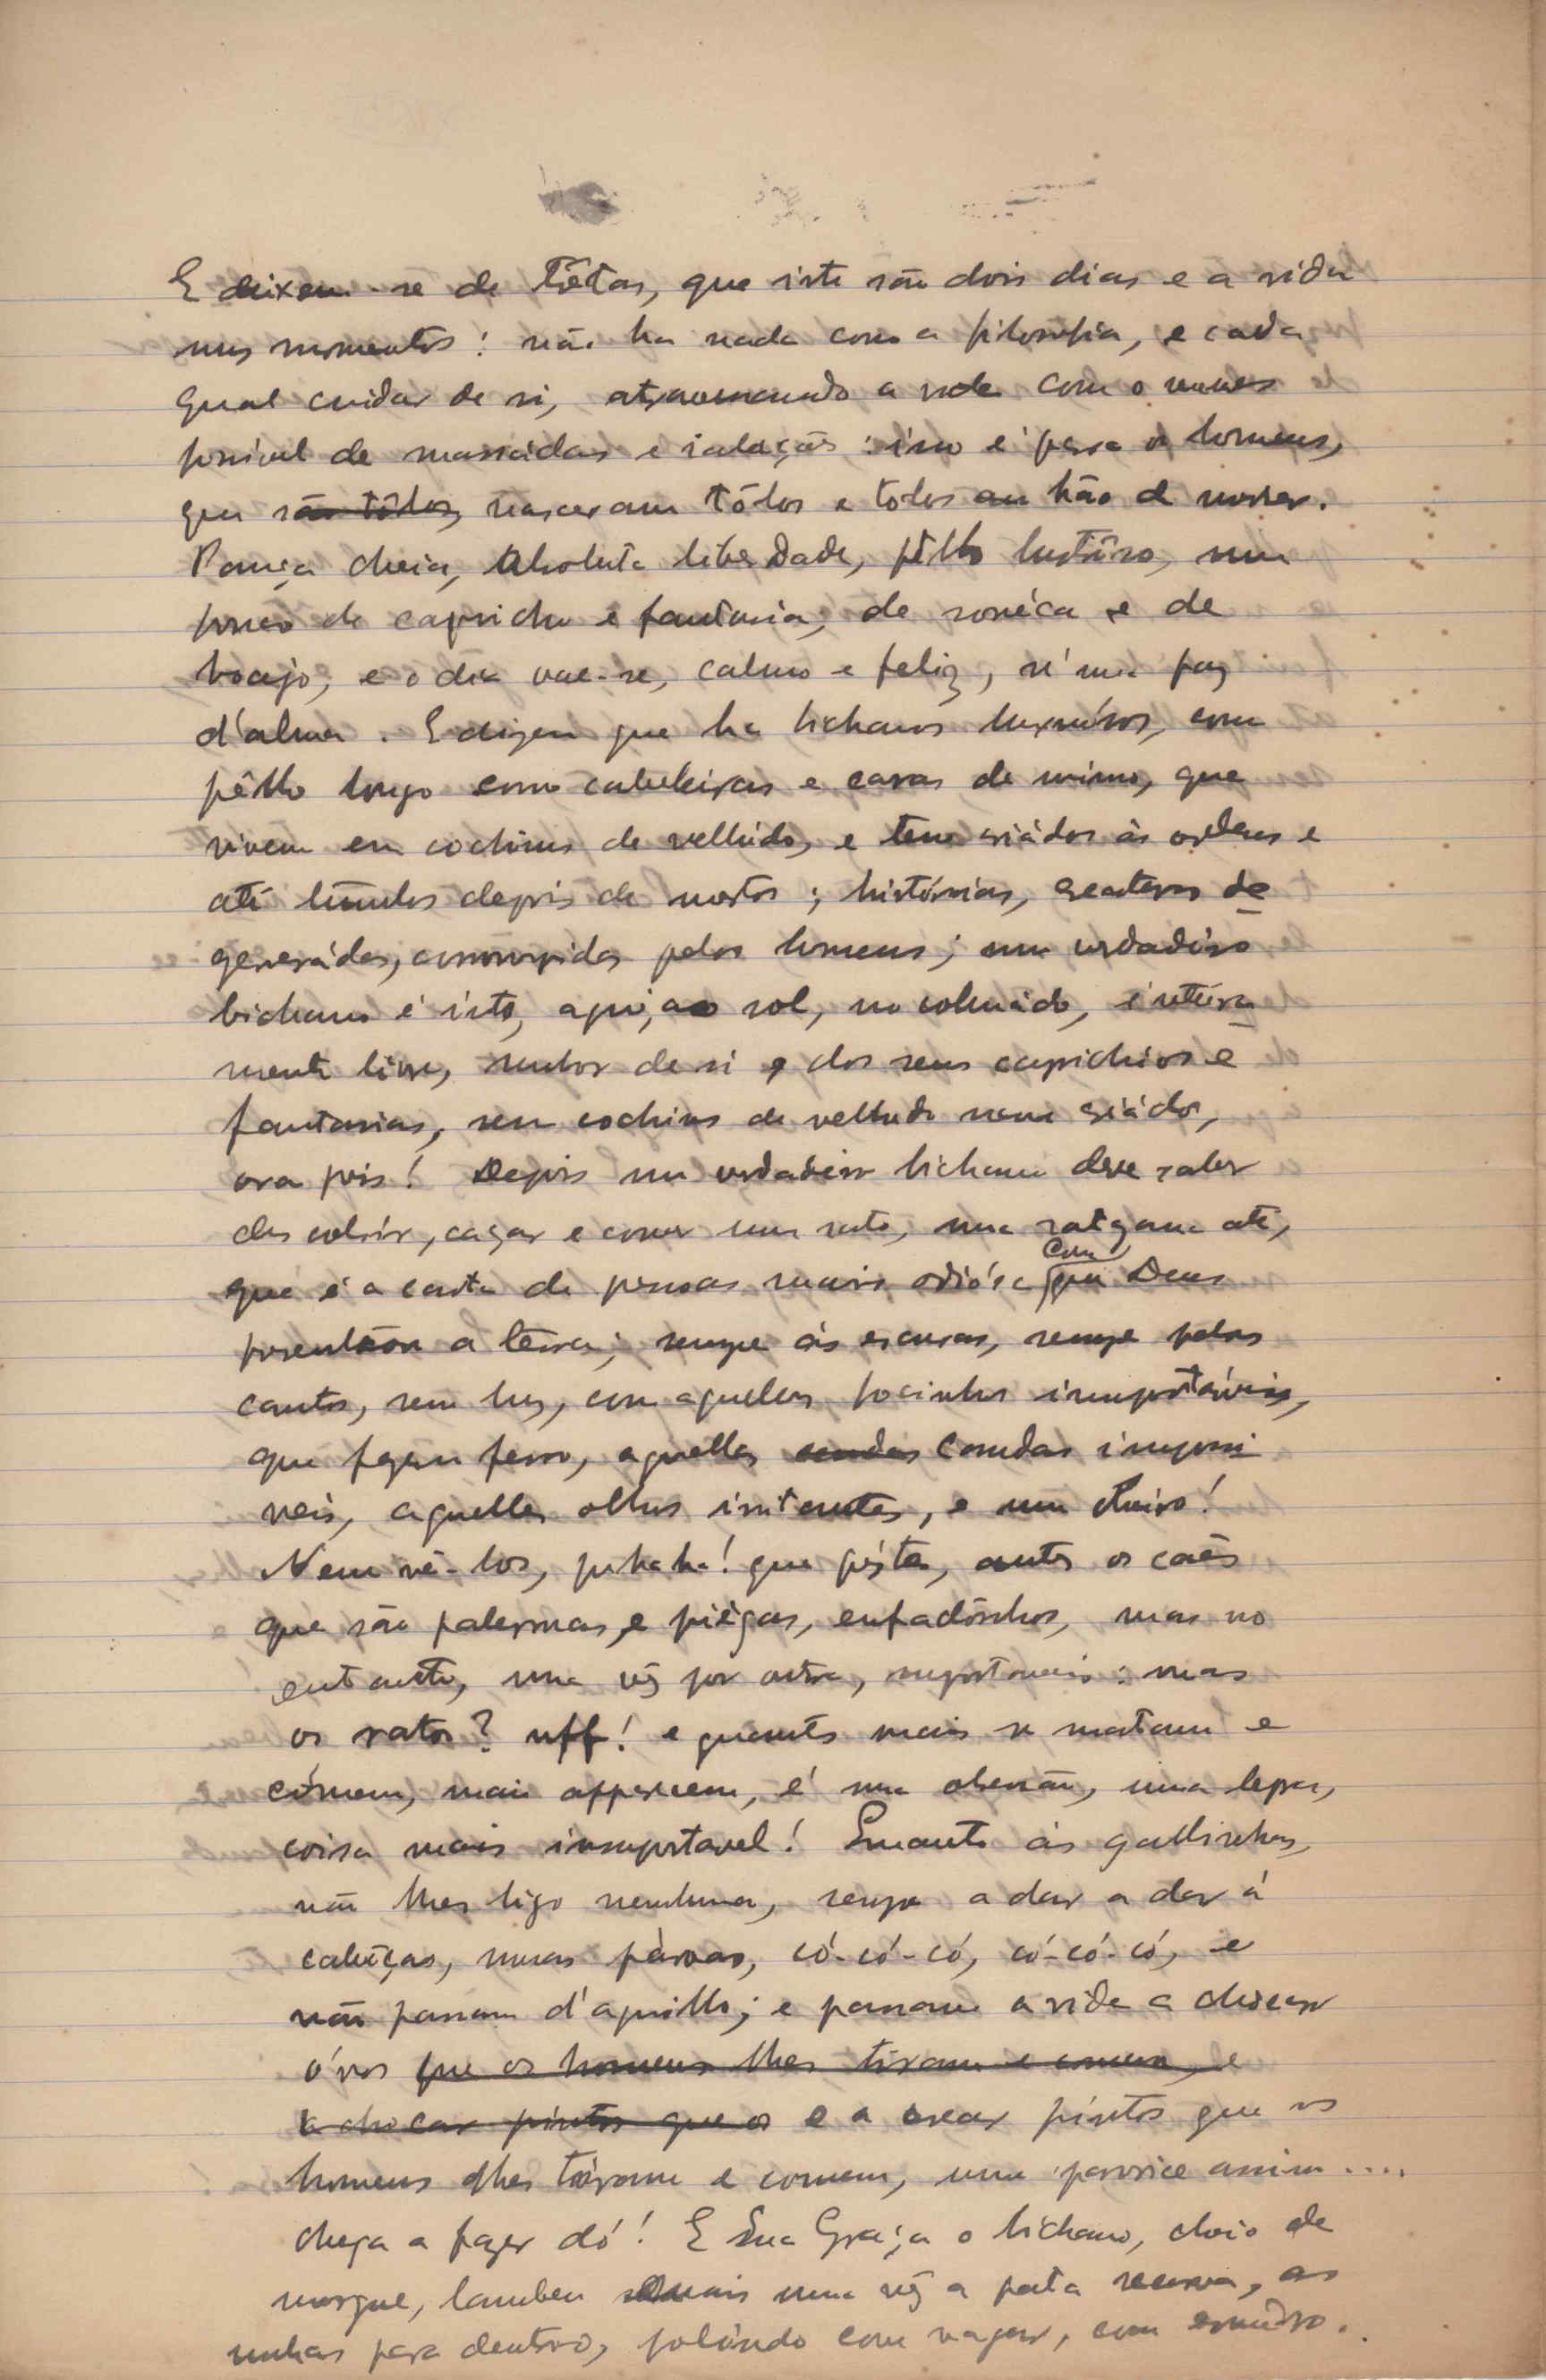 E deixem-se de tretas, que isto são dois dias e a vida
uns momentos: não ha nada como a filosofia, e cada
qual cuidar de si, atravessando a vida com o menos
possivel de massádas e ralações: isso é para os homens,
que são tôdos, nasceram tôdos e todos hão de morrer.
Pança cheia, absoluta liberdade, pêllo lustrôso, um
pouco de capricho e fantasia, de sonéca e de
bocejo, e o dia vae-se, calmo e feliz, n'uma paz
d'alma. E dizem que ha bichanos luxuósos, com
pêllo longo como cabeleiras e caras de mimo, que
vivem em cochins de velludo, e tem criádos ás ordens e
até túmulos depois de mortos; histórias, de
generádos, corrompidos pelos homens; um verdadeiro
bichano é isto, aqui, ao sol, no colmádo, inteira
mente livre, senhor de si e dos seus caprichos e
fantasias, sem cochins de velludo nem criádos,
ora pois! Depois um verdadeiro bichano deve saber
descobrir, caçar e comer um rato, uma ratazana até,
que é a casta de pessoas mais odiósa com que Deus
a terra; sempre ás escuras, sempre pelos
cantos, sem luz, com aquelles focinhos insuportáveis,
que fazem ferro, aquellas caudas impossi
veis, aquelles olhos irritantes, e um cheiro!
Nem vê-los, que péste, antes os cães
que são palermas, e piégas, enfadônhos, mas no
entanto, uma vez por outra, suportaveis: mas
os ratos? uff! e quantos mais se matam e
cómem, mais apparecem, é uma obsessão, uma lepra,
coisa mais insuportavel! Emquanto ás gallinhas,
não lhes ligo nenhuma, sempre a dar a dar á
cabêças, umas párvas, có-có-có, có-có-có, e
não passam d'aquillo; e passam a vida a chocar
óvos que os homens lhes tiram e comem, e
a chocar pintos que os e a crear pintos que os
homens lhes tiram e comem, uma parvoice assim....
chega a fazer dó! E Sua Graça o bichano, cheio de
morgue, lambeu mais uma vez a pata recurva, as
unhas para dentro, polindo com vagar, com esmêro.